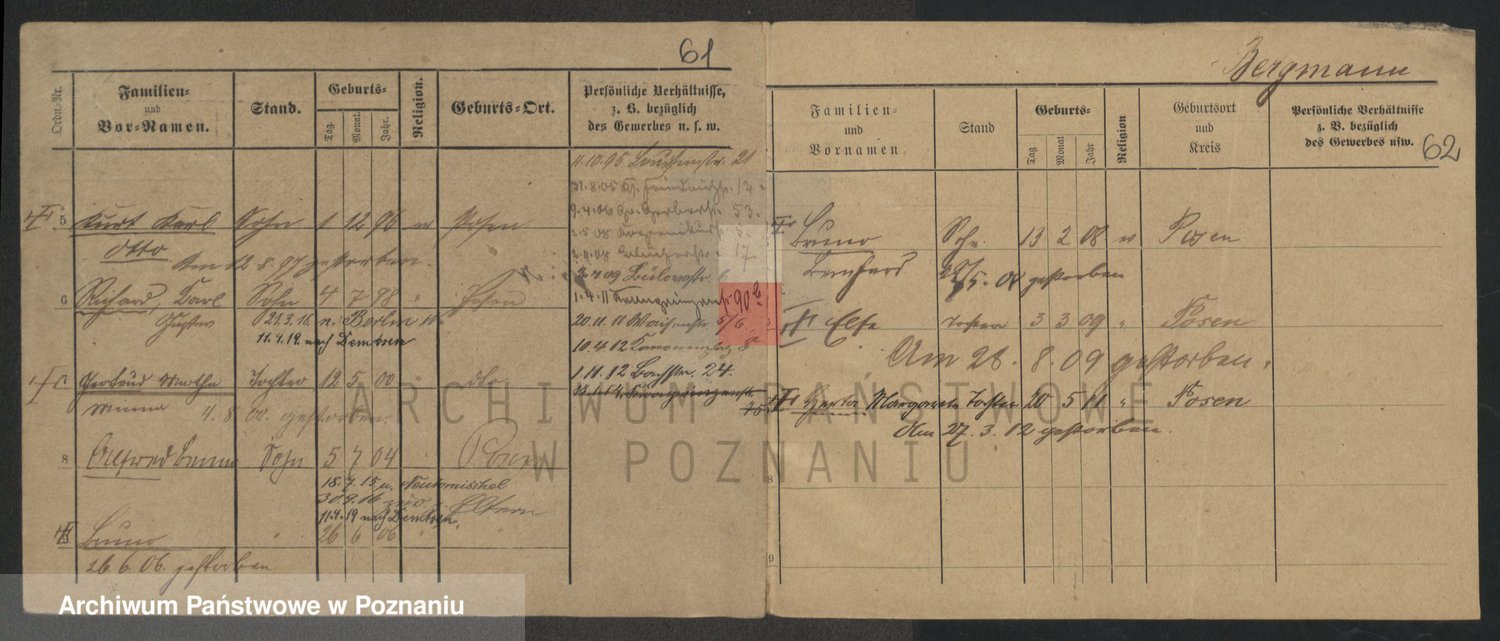 61
Ordn.-Nr.
Familien- und Vor-Namen.
Stand.
Geburts-
Tag. Monat. Jahr.
Religion.
Geburts-Ort.
Persönliche Verhältnisse, z. B. bezüglich des Gewerbes u. s. w.
11.10.95 21
31.8.05 12
9.4.06 Gr. Gerberstr. 53.
17
2.4.09 Bülowstr. 6
1.4.11 90b
20.11.11 Waisenstr. 5/6
10.4.12 Kanonenplatz 8
1.11.12 Bachstr. 24.
5 Kurt Karl Sohn 1 12 96 ev Posen
Otto
Am 12.8.97 gestorben.
6 Richard, Karl Sohn 4 7 98 " Posen
Gustav 21.3.16. n. Berlin
11.4.19 nach Dembsen
7 Gertrud Martha Tochter 12 5 00 " dto
4.8.00. gestorben
8 Alfred Bruno Sohn 5 7 04 Posen
18.7.15 n. Neutomischel
30.9.16 Eltern
11.4.19 nach Dembsen
Bruno 26 6 06
26.6.06. gestorben
Bergmann
62
Familien- und Vornamen.
Stand
Geburts-
Tag Monat Jahr
Religion
Geburtsort und Kreis
Persönliche Verhältnisse z. B. bezüglich des Gewerbes usw.
Bruno Sohn 13 2 08 ev Posen
28/5.08 gestorben
Else Tochter 3 3 09 " Posen
Am 28. 8. 09 gestorben.
Herta Margarete Tochter 20 5 11 " Posen
Am 27. 3. 12 gestorben.
8
9
ARCHIWUM PAŃSTWOWE
W POZNANIU
Archiwum Państwowe w Poznaniu